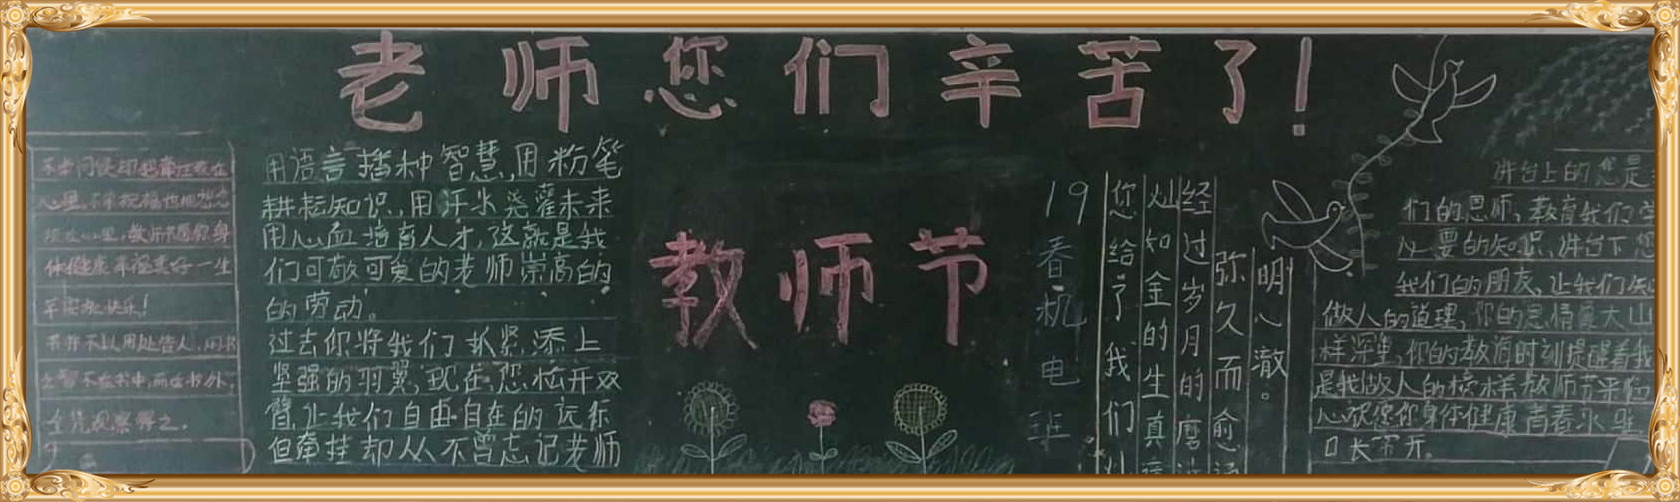 老师您们辛苦了!
不必问候
心里,不
教师
身体健康幸福美好一生
平安 快乐!
书并不以用处告人,用书
之智不在书中,而在书外,
全凭观察得之。
用语言播种智慧,用粉笔
耕耘知识,用汗水浇灌未来
用心血培育人才,这就是我
们可敬可爱的老师崇高的
的劳动。
过去你将我们抓紧,添上
坚强的羽翼,现在,您松开双
臂,让我们自由自在的远行
但牵挂却从不曾忘记老师
教师节
19春机电班
您给了我们
灿如金的生真
经过岁月的磨
弥久而愈
明心澈。
讲台上的您是
们的恩师,教育我们
必要的知识,讲台下您
我们的朋友,让我们
做人的道理,你的恩情夏大山
样深重,你的教诲时刻提醒着我
是我做人的榜样教师节来临
心祝您你身体健康青春永驻
口长开。